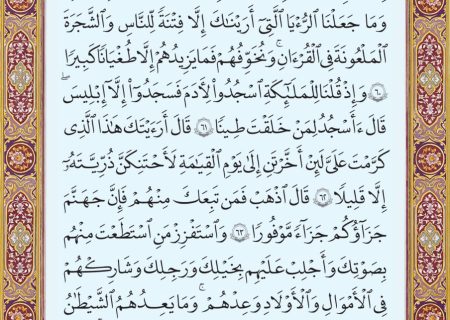 وَمَا جَعَلْنَا ٱلرُّءْيَا ٱلَّتِىٓ أَرَيْنَٰكَ إِلَّا فِتْنَةً لِّلنَّاسِ وَٱلشَّجَرَةَ
ٱلْمَلْعُونَةَ فِى ٱلْقُرْءَانِ ۚ وَنُخَوِّفُهُمْ فَمَا يَزِيدُهُمْ إِلَّا طُغْيَٰنًا كَبِيرًا
٦٠ وَإِذْ قُلْنَا لِلْمَلَٰٓئِكَةِ ٱسْجُدُوا۟ لِءَادَمَ فَسَجَدُوٓا۟ إِلَّآ إِبْلِيسَ
قَالَ ءَأَسْجُدُ لِمَنْ خَلَقْتَ طِينًا ٦١ قَالَ أَرَءَيْتَكَ هَٰذَا ٱلَّذِى
كَرَّمْتَ عَلَىَّ لَئِنْ أَخَّرْتَنِ إِلَىٰ يَوْمِ ٱلْقِيَٰمَةِ لَأَحْتَنِكَنَّ ذُرِّيَّتَهُۥٓ
إِلَّا قَلِيلًا ٦٢ قَالَ ٱذْهَبْ فَمَن تَبِعَكَ مِنْهُمْ فَإِنَّ جَهَنَّمَ
جَزَآؤُكُمْ جَزَآءً مَّوْفُورًا ٦٣ وَٱسْتَفْزِزْ مَنِ ٱسْتَطَعْتَ مِنْهُم
بِصَوْتِكَ وَأَجْلِبْ عَلَيْهِم بِخَيْلِكَ وَرَجِلِكَ وَشَارِكْهُمْ
فِى ٱلْأَمْوَٰلِ وَٱلْأَوْلَٰدِ وَعِدْهُمْ ۚ وَمَا يَعِدُهُمُ ٱلشَّيْطَٰنُ